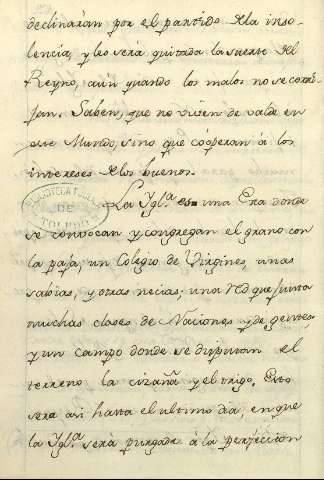 declinaran por el partido de la inso-
lencia, y les será quitada la suerte del
Reyno, aún quando los malos no se corri-
jan. Saben, que no viven de valde en
este Mundo, sino que cooperan á los
intereses de los buenos.
BIBLIOTECA
DE
TOLEDO
La Ygl.ª es una Era donde
se convocan y congregan el grano con
la paja, un Colegio de Virgines, unas
sabias, y otras necias; una red que junta
muchas clases de Naciones y de gentes,
y un campo donde se disputan el
terreno la cizaña y el trigo. Esto
sera asi hasta el ultimo dia, en que
la Ygl.ª será purgada á la perfeccion